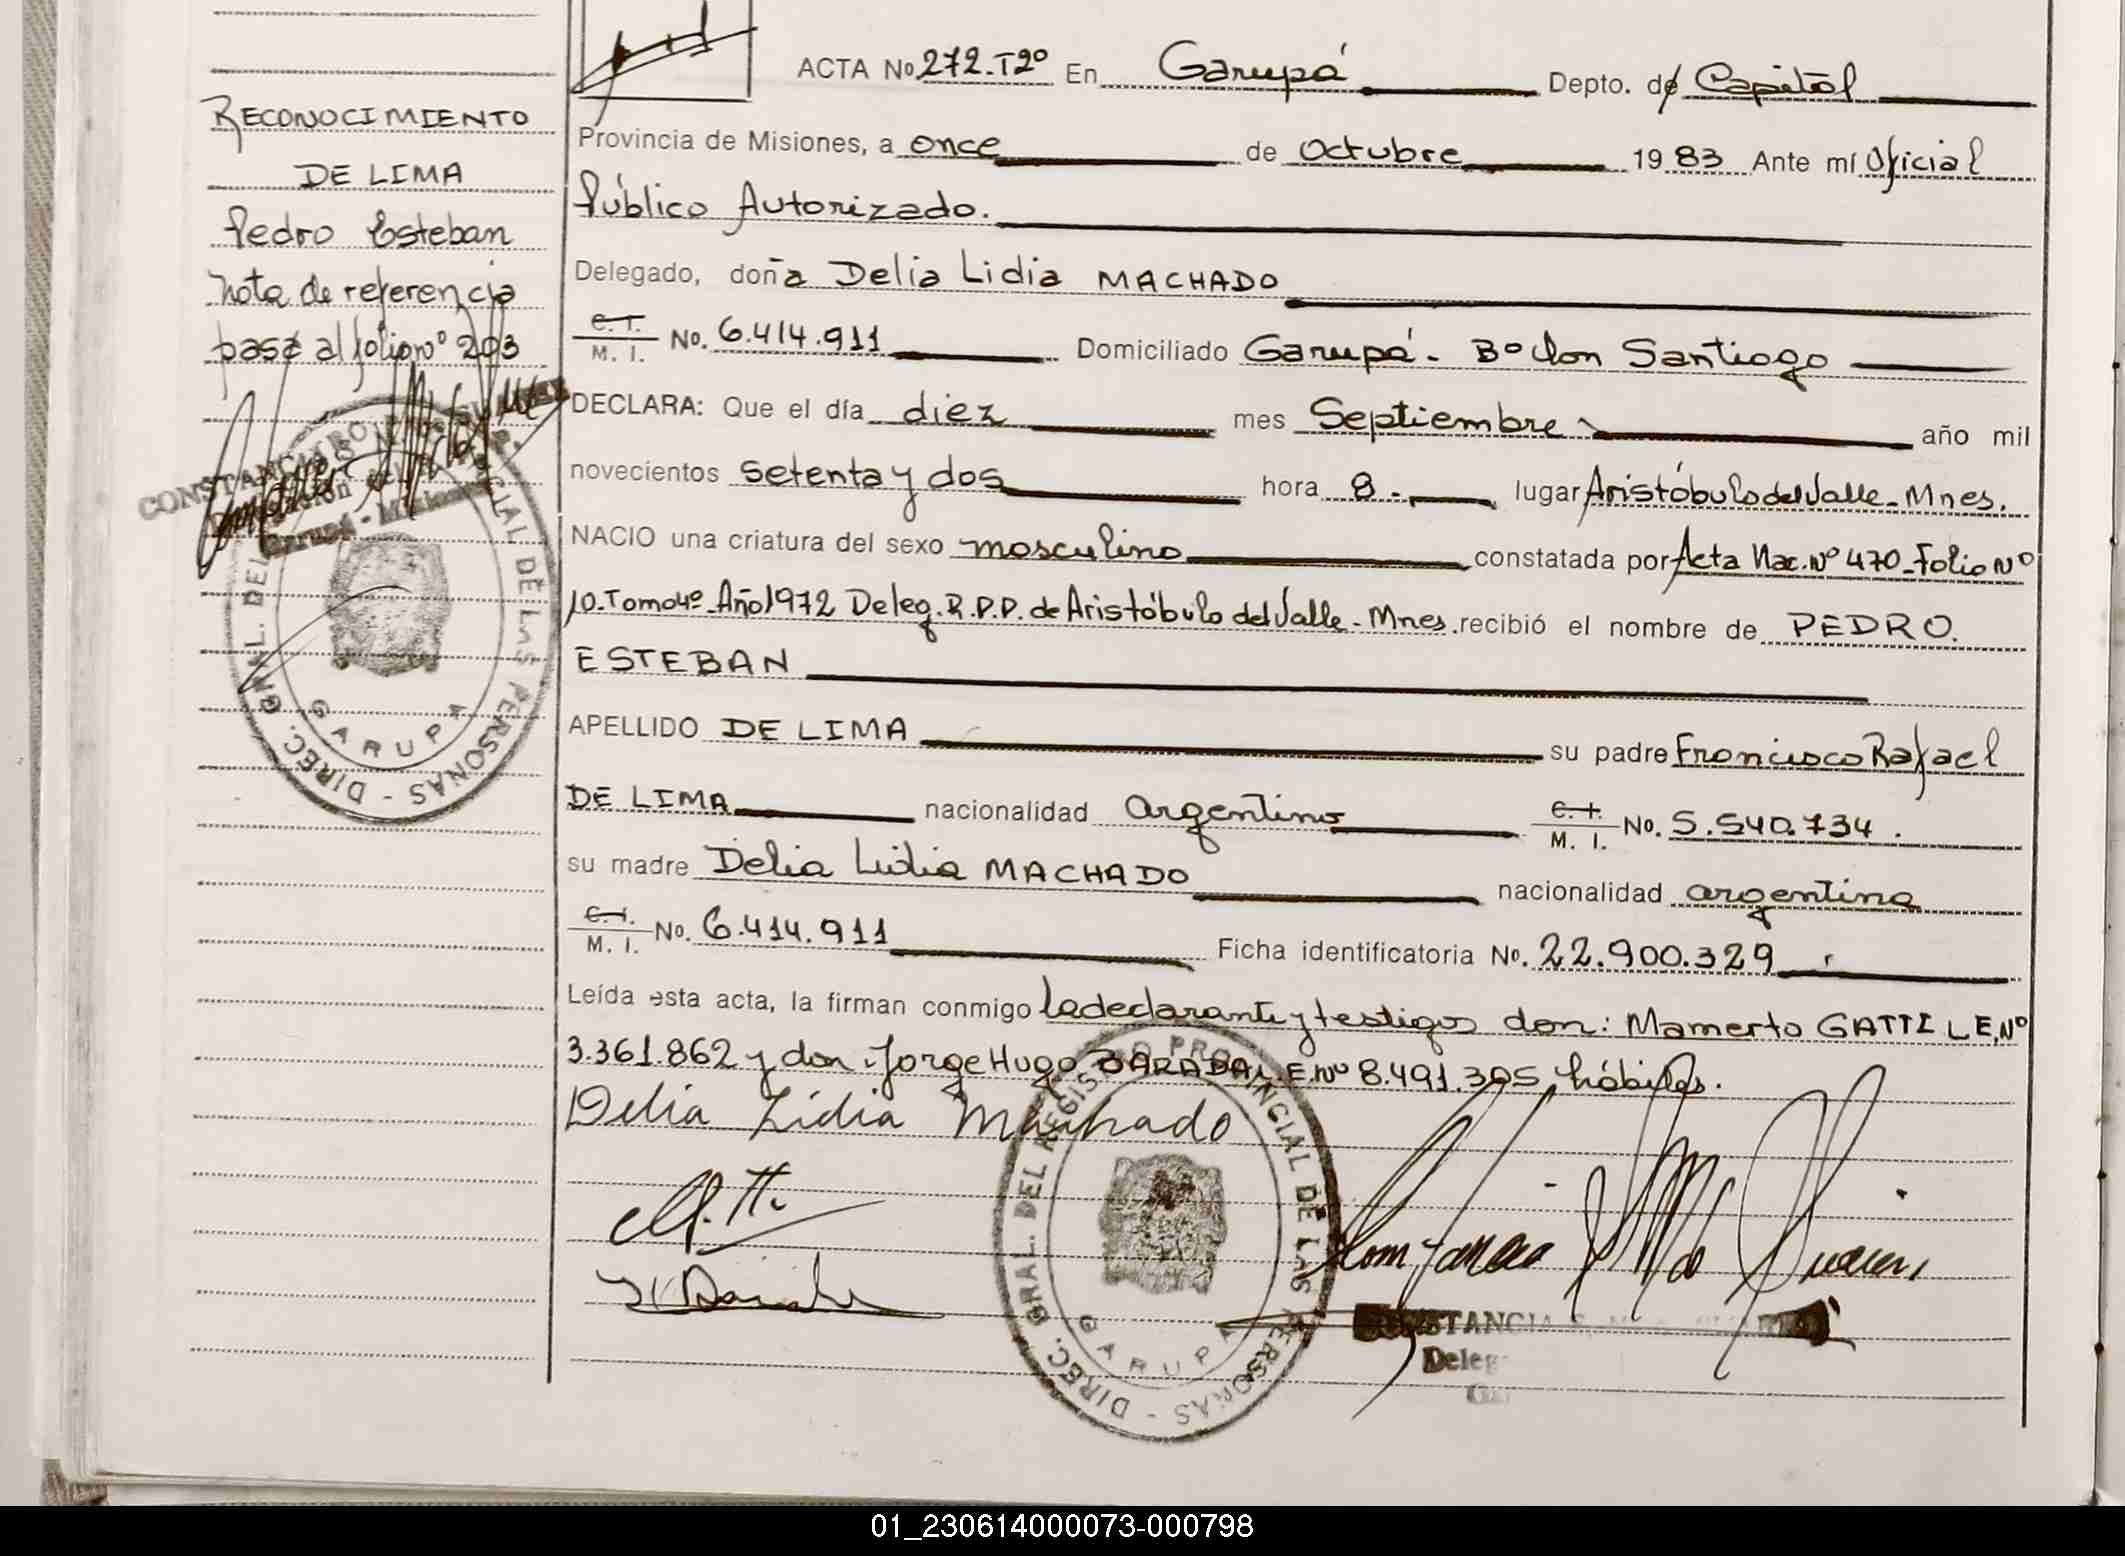 ACTA No 272.T2º En Garupá Depto. de Capital
RECONOCIMIENTO
DE LIMA
Pedro Esteban
nota de referencia
pase al folio nº 203
Provincia de Misiones, a once de Octubre 1983 Ante mí Oficial
Público Autorizado.
Delegado, doña Delia Lidia MACHADO
C.I. M. I. No. 6.414.911 Domiciliado Garupá - Bº Don Santiago
DECLARA: Que el día diez mes Septiembre año mil
novecientos setenta y dos hora 8.- lugar Aristóbulo del Valle - Mnes.
NACIO una criatura del sexo masculino constatada por Acta Nac. Nº 470 - Folio Nº
10 - Tomo 4º - Año 1972 Deleg. R.P.P. de Aristóbulo del Valle - Mnes. recibió el nombre de PEDRO
ESTEBAN
APELLIDO DE LIMA su padre Francisco Rafael
DE LIMA nacionalidad argentino C.I. M. I. No. 5.540.734.
su madre Delia Lidia MACHADO nacionalidad argentina
C.I. M. I. No. 6.414.911 Ficha identificatoria No. 22.900.329
Leída esta acta, la firman conmigo la declarante y testigos don: Mamerto GATTI L.E. Nº
3.361.862 y don Jorge Hugo L.E. Nº 8.491.305 hábiles.
Delia Lidia Machado
DIREC. GRAL. DEL REGISTRO PROVINCIAL DE LAS PERSONAS - GARUPA
DIREC. GRAL. DEL REGISTRO PROVINCIAL DE LAS PERSONAS - GARUPA
CONSTANCIA
Deleg
01_230614000073-000798